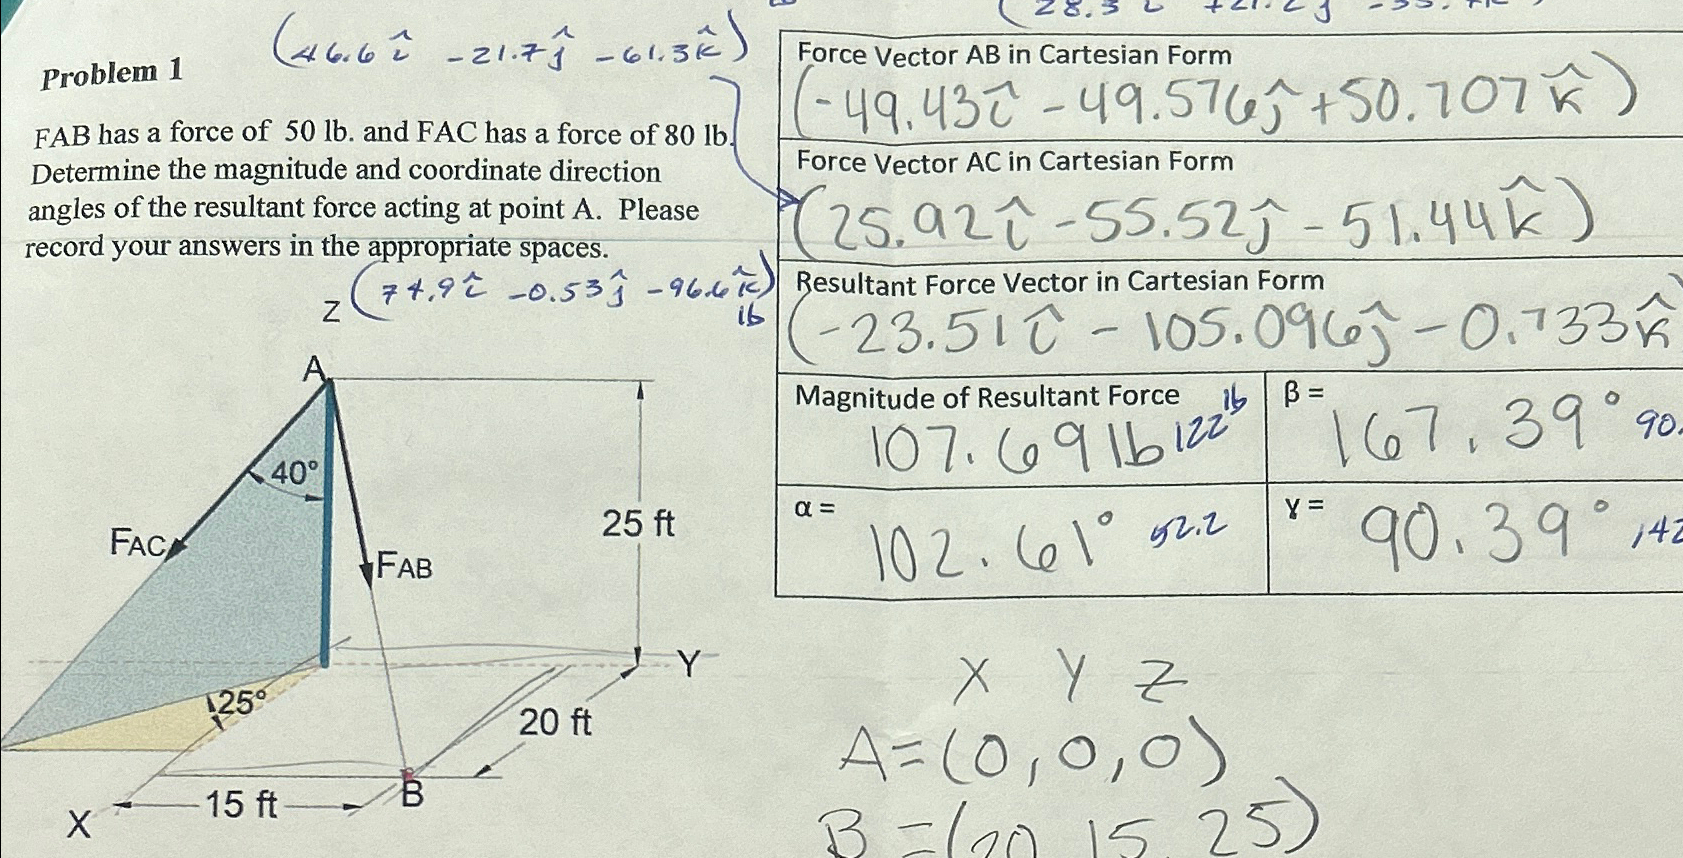 (28.3 î +21.2 ĵ
(46.6 î -21.7 ĵ -61.3 k̂)
Problem 1
FAB has a force of 50 lb. and FAC has a force of 80 lb.
Determine the magnitude and coordinate direction
angles of the resultant force acting at point A. Please
record your answers in the appropriate spaces.
(74.9 î -0.53 ĵ -96.6 k̂)
lb
Force Vector AB in Cartesian Form
(-49.43 î - 49.576 ĵ + 50.707 k̂)
Force Vector AC in Cartesian Form
(25.92 î - 55.52 ĵ - 51.44 k̂)
Resultant Force Vector in Cartesian Form
(-23.51 î - 105.096 ĵ - 0.733 k̂
Magnitude of Resultant Force
107.69 lb 122 lb
β =
167.39° 90.
α =
102.61° 52.2
γ =
90.39° 142
Z
A
40°
FAC
FAB
25 ft
Y
25°
20 ft
15 ft
B
X
X Y Z
A = (0, 0, 0)
B = (20 15 25)